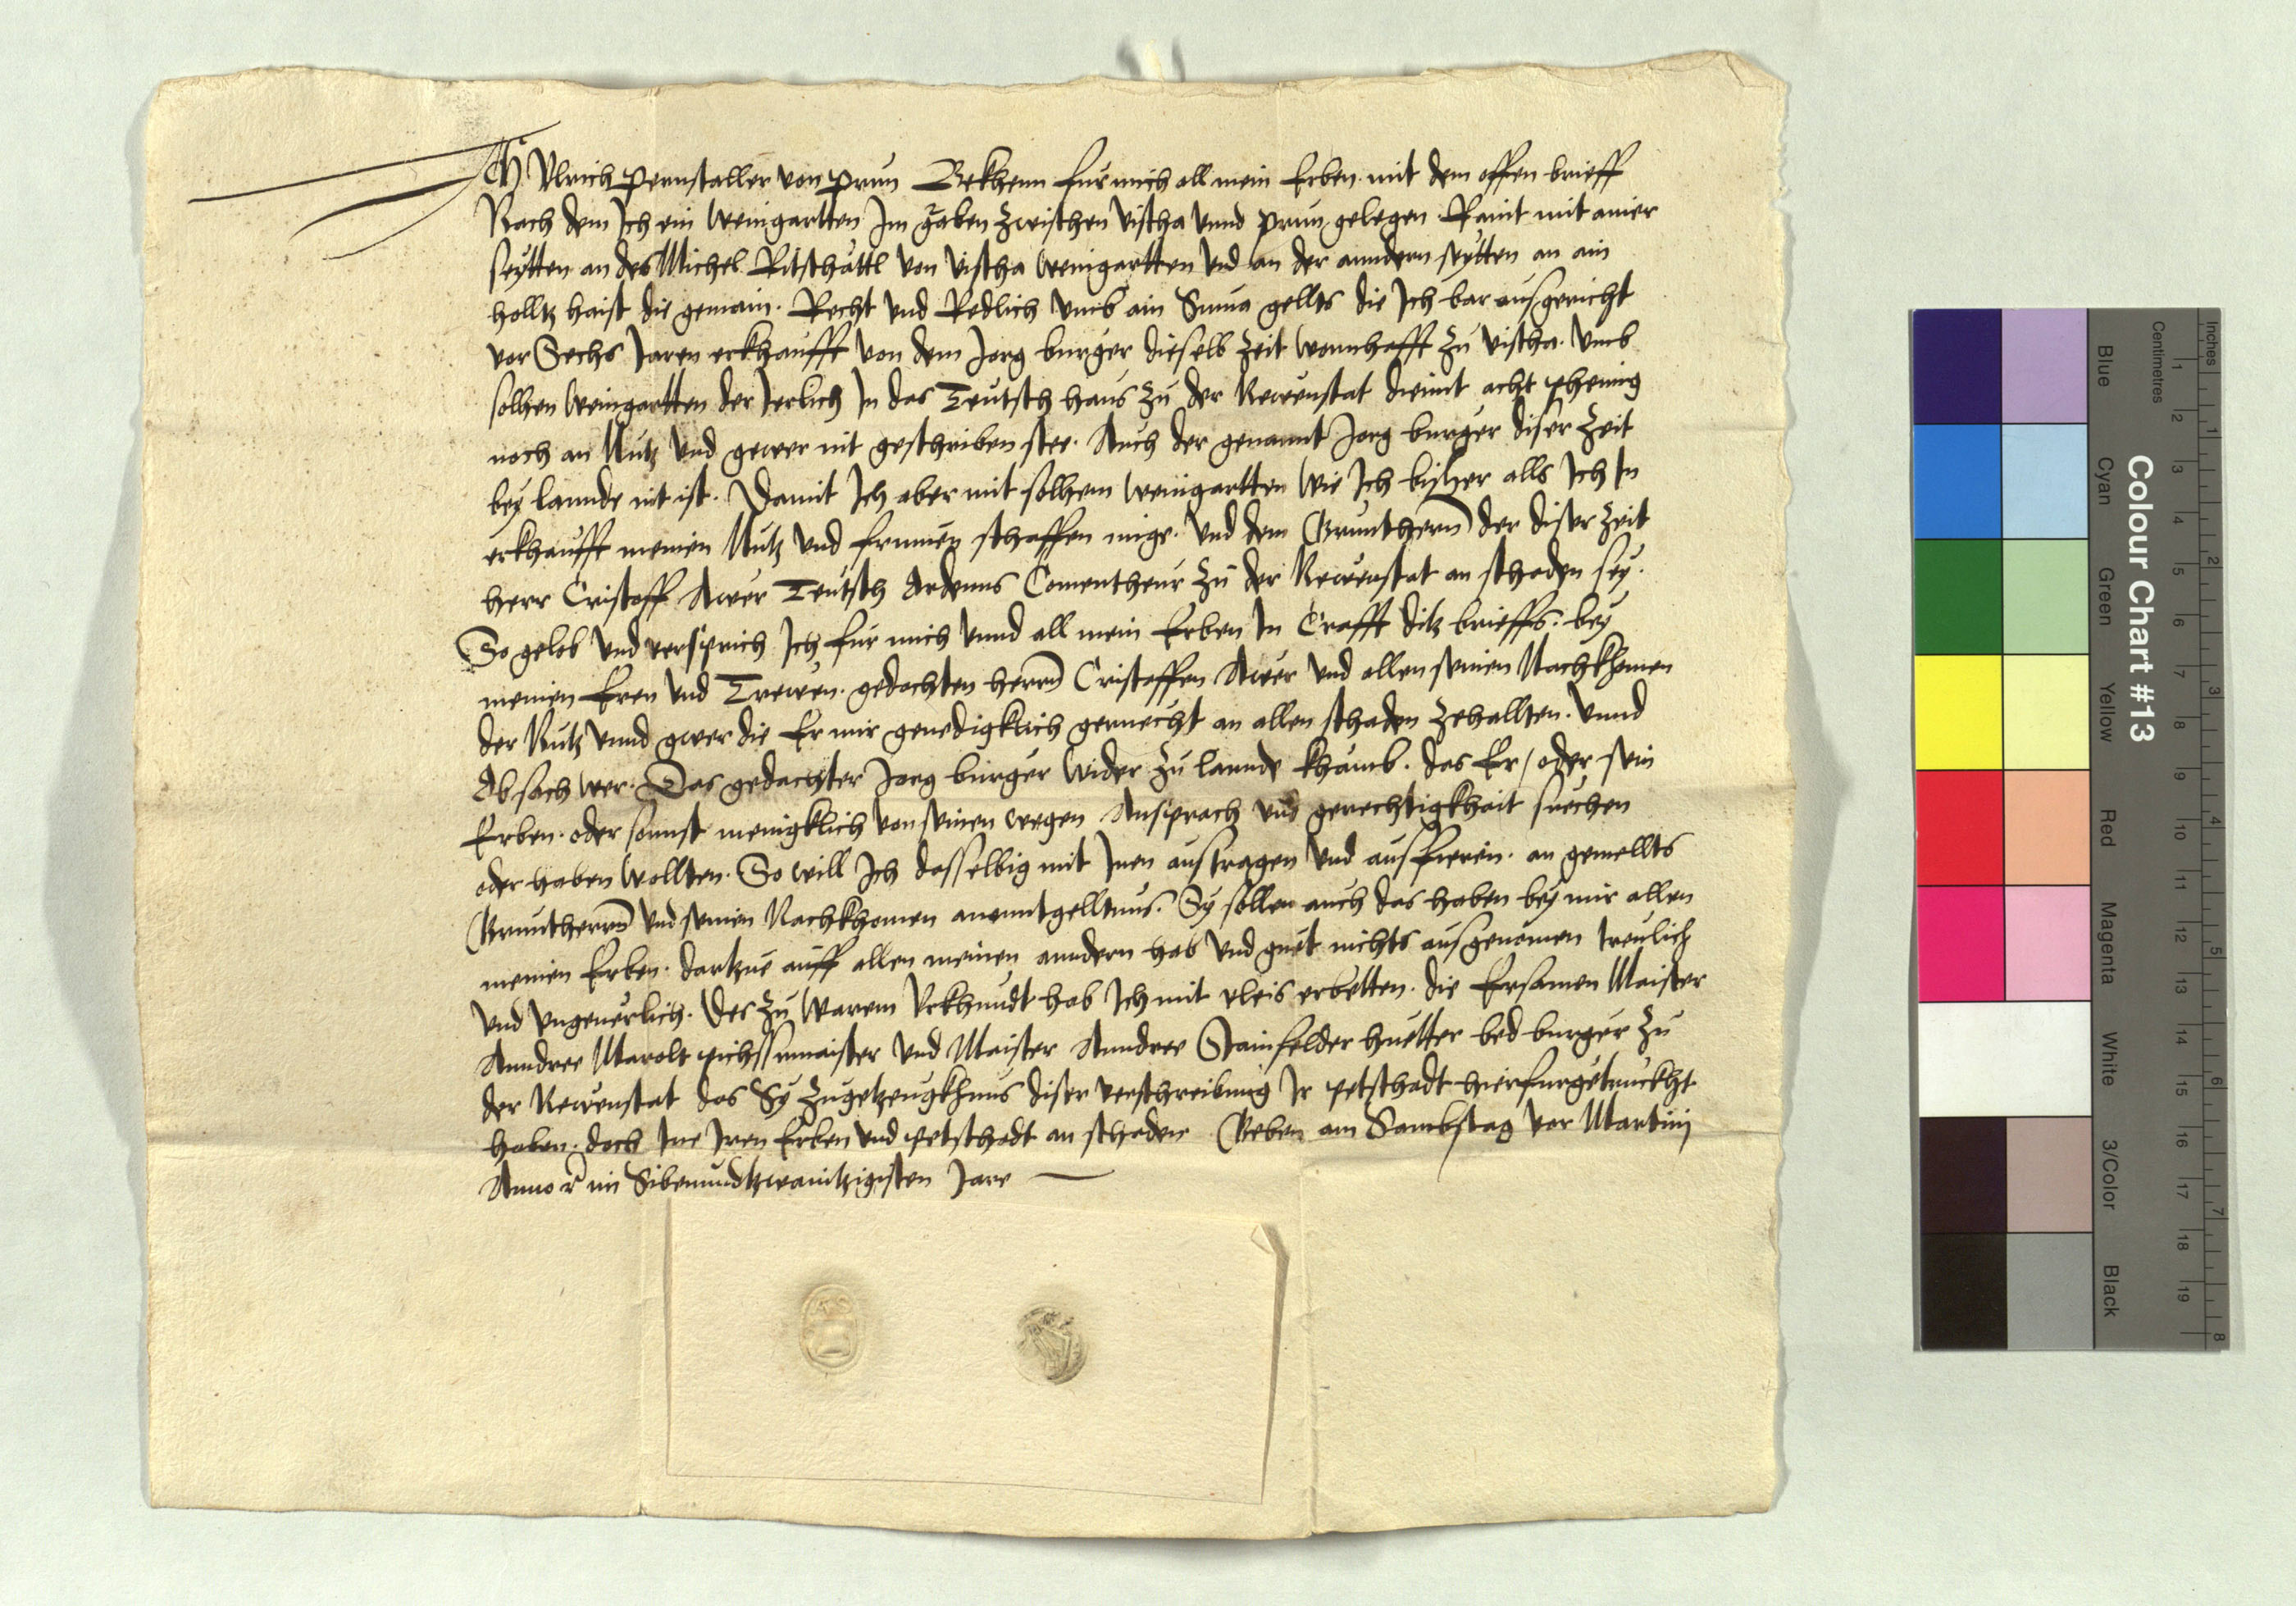 Ich Vlrich Pernstaller von Prun Bekhenn fur mich all mein Erben mit dem offen brieff
Nach dem Ich ein Weingartten Im graben zwischen vischa vnnd prun gelegen Raint mit ainer
seytten an des Michel Ritschattl von vischa Weingartten vnd an der anndern seytten an ain
holltz haist die gemain. Recht vnd Redlich vmb ain Suma gellts die Ich bar ausgericht
vor Sechs Jaren erkhaufft von dem Jorg burger dieselb zeit wonnhafft zu vischa. vmb
solhen Weingartten der Jerlich In das Teutsch haus zu der Newenstat dieint acht phening
noch an Nutz vnd gewer nit geschriben stee. Auch der genannt Jorg burger diser zeit
bey lannde nit ist. Damit Ich aber mit solhem Weingartten wie Ich bisher alls Ich In
erkhaufft meinen Nutz vnd frumen schaffen muge. vnd dem Grunthern der diser zeit
herr Cristoff Awer Teutsch Ordenns Comentheur zu der Newenstat an schaden sey.
So gelob vnd versprich Ich fur mich vnnd all mein Erben In Crafft ditz brieffs. bey
meinen Eren vnd Trewen. gedachten herrn Cristoffen Awer vnd allen seinen Nachkhomen
der Nutz vnnd gwer die Er mir genedigklich gemecht an allen schaden zehallten. vnnd
Ob sach wer. Das gedachter Jorg burger wider zu lannde khamb. das Er / oder sein
Erben. oder sonnst menigklich von seinen wegen Ansprach vnd gerechtigkhait suechen
oder haben wollten. So will Ich dasselbig mit Inen austragen vnd ausfueren. an gemellts
Grunthern vnd seinen Nachkhomen anenntgelltnus. Sy sollen auch das haben bey mir allen
meinen Erben. dartzue auff allen meinen anndern hab vnd guet nichts ausgenomen treulich
vnd vngeuerlich. Des zu warem Vrkhundt hab Ich mit vleis erbetten. die Ersamen Maister
Anndree Marolt pichssnmaister vnd Maister Anndree Stainfelder huetter bed burger zu
der Newenstat das Sy zugetzeugkhnus diser verschreibung Ir petschadt hierfurgetruckht
haben. doch Ine Iren Erben vnd petschadt an schaden Geben am Sambstag vor Martinj
Anno im Sibenundtzwaintzigisten Jare
AS
Colour Chart #13
Blue
Cyan
Green
Yellow
Red
Magenta
White
3/Color
Black
Inches
1 2 3 4 5 6 7 8
Centimetres
1 2 3 4 5 6 7 8 9 10 11 12 13 14 15 16 17 18 19